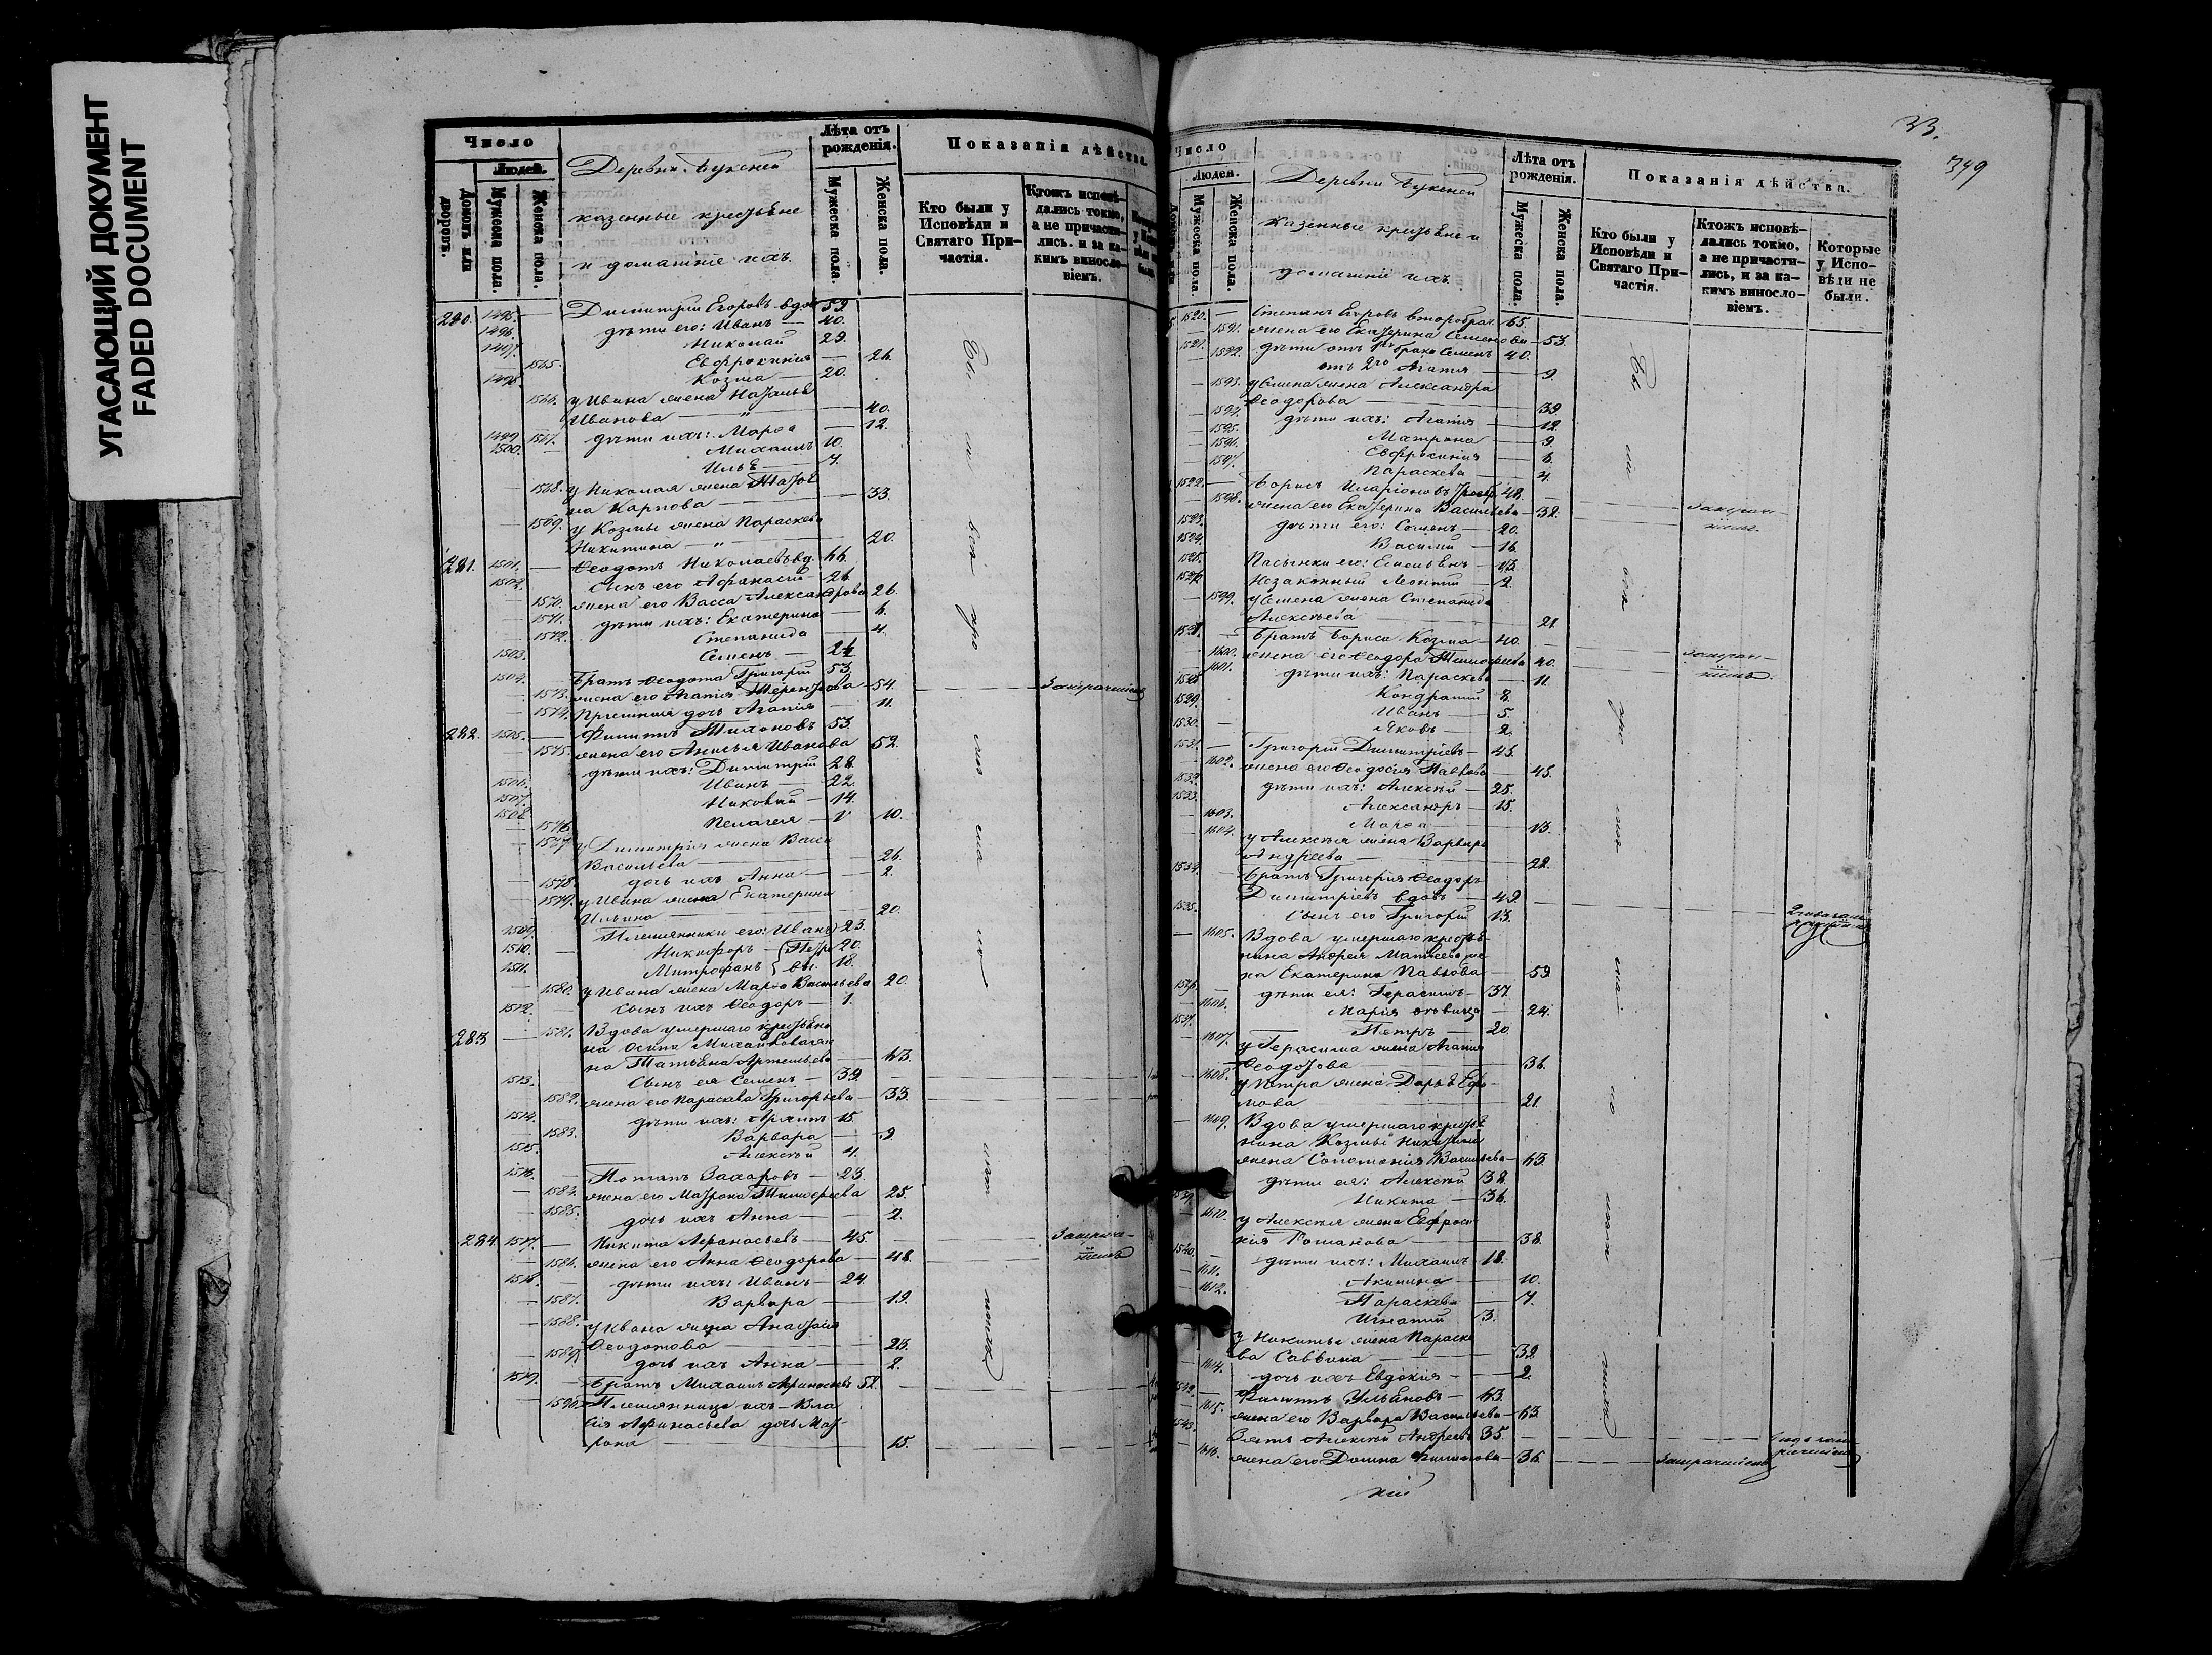 УГАСАЮЩИЙ ДОКУМЕНТ
FADED DOCUMENT
Число
Людей.
Домовъ или дворовъ.
Мужеска пола.
Женска пола.
Деревни Букеней
казенные крестьяне
и домашніе ихъ
Лѣта отъ рожденія.
Мужеска пола.
Женска пола.
Показанія дѣйства.
Кто были у Исповѣди и Святаго Причастія.
Ктожъ исповѣдались токмо, а не причастились. и за какимъ винословіемъ.
280. 1495. — Димитрій Егоровъ вдов 59.
1496. дѣти его: Иванъ — 40.
1497. Николай 29.
— 1565. Евфросинія — 26.
1498. Козма — 20.
1566. у Ивана жена Наталья
Иванова — 40.
— 1567. дѣти ихъ: Марѳа — 12.
1499. Михаилъ 10.
1500. Илья — 7.
— 1568. у Николая жена Татья
на Карпова — 33.
— 1569. у Козмы жена Параскева
Никитина — 20.
281. 1501. — Ѳеодотъ Николаевъ вд. 66.
1502. сынъ его Афанасій — 26.
— 1570. жена его Васса Александрова 26.
— 1571. дѣти ихъ: Екатерина — 6.
— 1572. Степанида — 4.
1503. Семенъ — 24.
1504. Братъ Ѳеодота Григорій 53.
— 1573. жена его Агапія Терентьева — 54.
— 1574. дочь Агапія — 11.
282. 1505. — Филиппъ Тихоновъ 53.
— 1575. жена его Анисья Иванова 52.
дѣти ихъ: Димитрій 28.
1506. Иванъ — 22.
1507. — 14.
1508.
— 1576. Пелагея — 10.
— 1577. у Димитрія жена Васса
Васильева — 26.
— 1578. дочь ихъ Анна — 2.
— 1579. у Ивана жена Екатерина
Ильина — 20.
1509. Племянники его: Иванъ 23.
1510. — Никифоръ — 20.
1511. Митрофанъ 18.
— 1580. у Ивана жена Марѳа Васильева 20.
1512. — сынъ ихъ Ѳеодоръ — 1.
283 — 1581. Вдова умершаго крестьяни
на Осипа Михайлова же
на Татьяна Артемьева — 63.
1513. сынъ ея Семенъ — 39.
1582. жена его Параскева Григорьева — 33.
1514. дѣти ихъ: Архипъ 15.
— 1583. Варвара — 9.
1515. Алексѣй 4.
1516. — Потапъ Захаровъ — 23.
— 1584. жена его Матрона Тимофеева 25.
— 1585. дочь ихъ Анна — 2.
284. 1517. — Никита Афанасьевъ — 45.
— 1586. жена его Анна Ѳеодорова — 48.
1518. — дѣти ихъ: Иванъ — 24.
— 1587. Варвара — 19.
— 1588. у Ивана жена Анастасія
Ѳеодотова — 23.
— 1589. дочь ихъ Анна — 2.
1519. — Братъ Михаилъ Афанасьевъ 52.
— 1590. Племянница ихъ — Вла
сія Афанасьева дочь Мат
рона — 15.
33.
349
Число
Людей.
Мужеска пола.
Женска пола.
Деревни Букеней
казенные крестьяне и
домашніе ихъ
Лѣта отъ рожденія.
Мужеска пола.
Женска пола.
Показанія дѣйства.
Кто были у Исповѣди и Святаго Причастія.
Ктожъ исповѣдались токмо, а не причастились, и за какимъ винословіемъ.
Которые у Исповѣди не были.
1520. — Степанъ Егоровъ второбрач. 65.
— 1591. жена его Екатерина Семенова — 53.
1521. дѣти отъ 1го брака Семенъ 40.
— 1592. отъ 2го Агапія — 9.
— 1593. у Семена жена Александра
Ѳеодорова — 39.
— 1594. дѣти ихъ: Агапія — 12.
— 1595. Матрона — 9.
— 1596. Евфросинія — 6.
— 1597. Параскева — 4.
1522. — Борисъ Иларіоновъ 48.
— 1598. жена его Екатерина Васильева — 32.
1523. дѣти его: Семенъ — 20.
1524. Василій — 16.
1525. Пасынки его: Емельянъ — 13.
1526. Незаконный Леонтій — 2.
— 1599. у Семена жена Степанида
Алексѣева — 21.
1527. — Братъ Бориса Козма — 40.
— 1600. жена его Ѳеодора Тимофеева 40.
— 1601. дѣти ихъ: Параскева — 11.
1528. Кондратій 8.
1529. Иванъ — 5.
1530. — Яковъ — 2.
1531. — Григорій Димитріевъ — 45.
— 1602. жена его Ѳеодосія Павлова — 45.
1532. дѣти ихъ: Алексѣй — 25.
1533. Александръ — 15.
— 1603. Марѳа — 13.
— 1604. у Алексѣя жена Варвара
Андреева — 22.
1534. Братъ Григорія Ѳеодоръ
Димитріевъ вдовъ — 49.
1535. сынъ его Григорій 13.
— 1605. Вдова умершаго крестья
нина Андрея Матвеева же
на Екатерина Павлова — 59.
1536. — дѣти ея: Герасимъ — 37.
— 1606. Марія — 24.
1537. Петръ — 20.
— 1607. у Герасима жена Агапія
Ѳеодотова — 36.
— 1608. у Петра жена Дарья Ефи
мова — 21.
— 1609. Вдова умершаго крестья
нина Козмы Никитина
жена Васильева — 63.
дѣти ея: Алексѣй 38.
1539. Никита — 36.
— 1610. у Алексѣя жена Евфроси
нія Романова — 38.
1540. — дѣти ихъ: Михаилъ 18.
— 1611. Акилина — 10.
— 1612. Параскева — 7.
Игнатій 3.
у Никиты жена Параске
ва Саввина — 32.
— 1614. дочь ихъ Евдокія — 2.
1542. — Филиппъ Ульяновъ — 63.
— 1615. жена его Варвара Васильева — 63.
1543. Зять Алексѣй Андреевъ 35.
— 1616. жена его Домна Филиппова — 36.